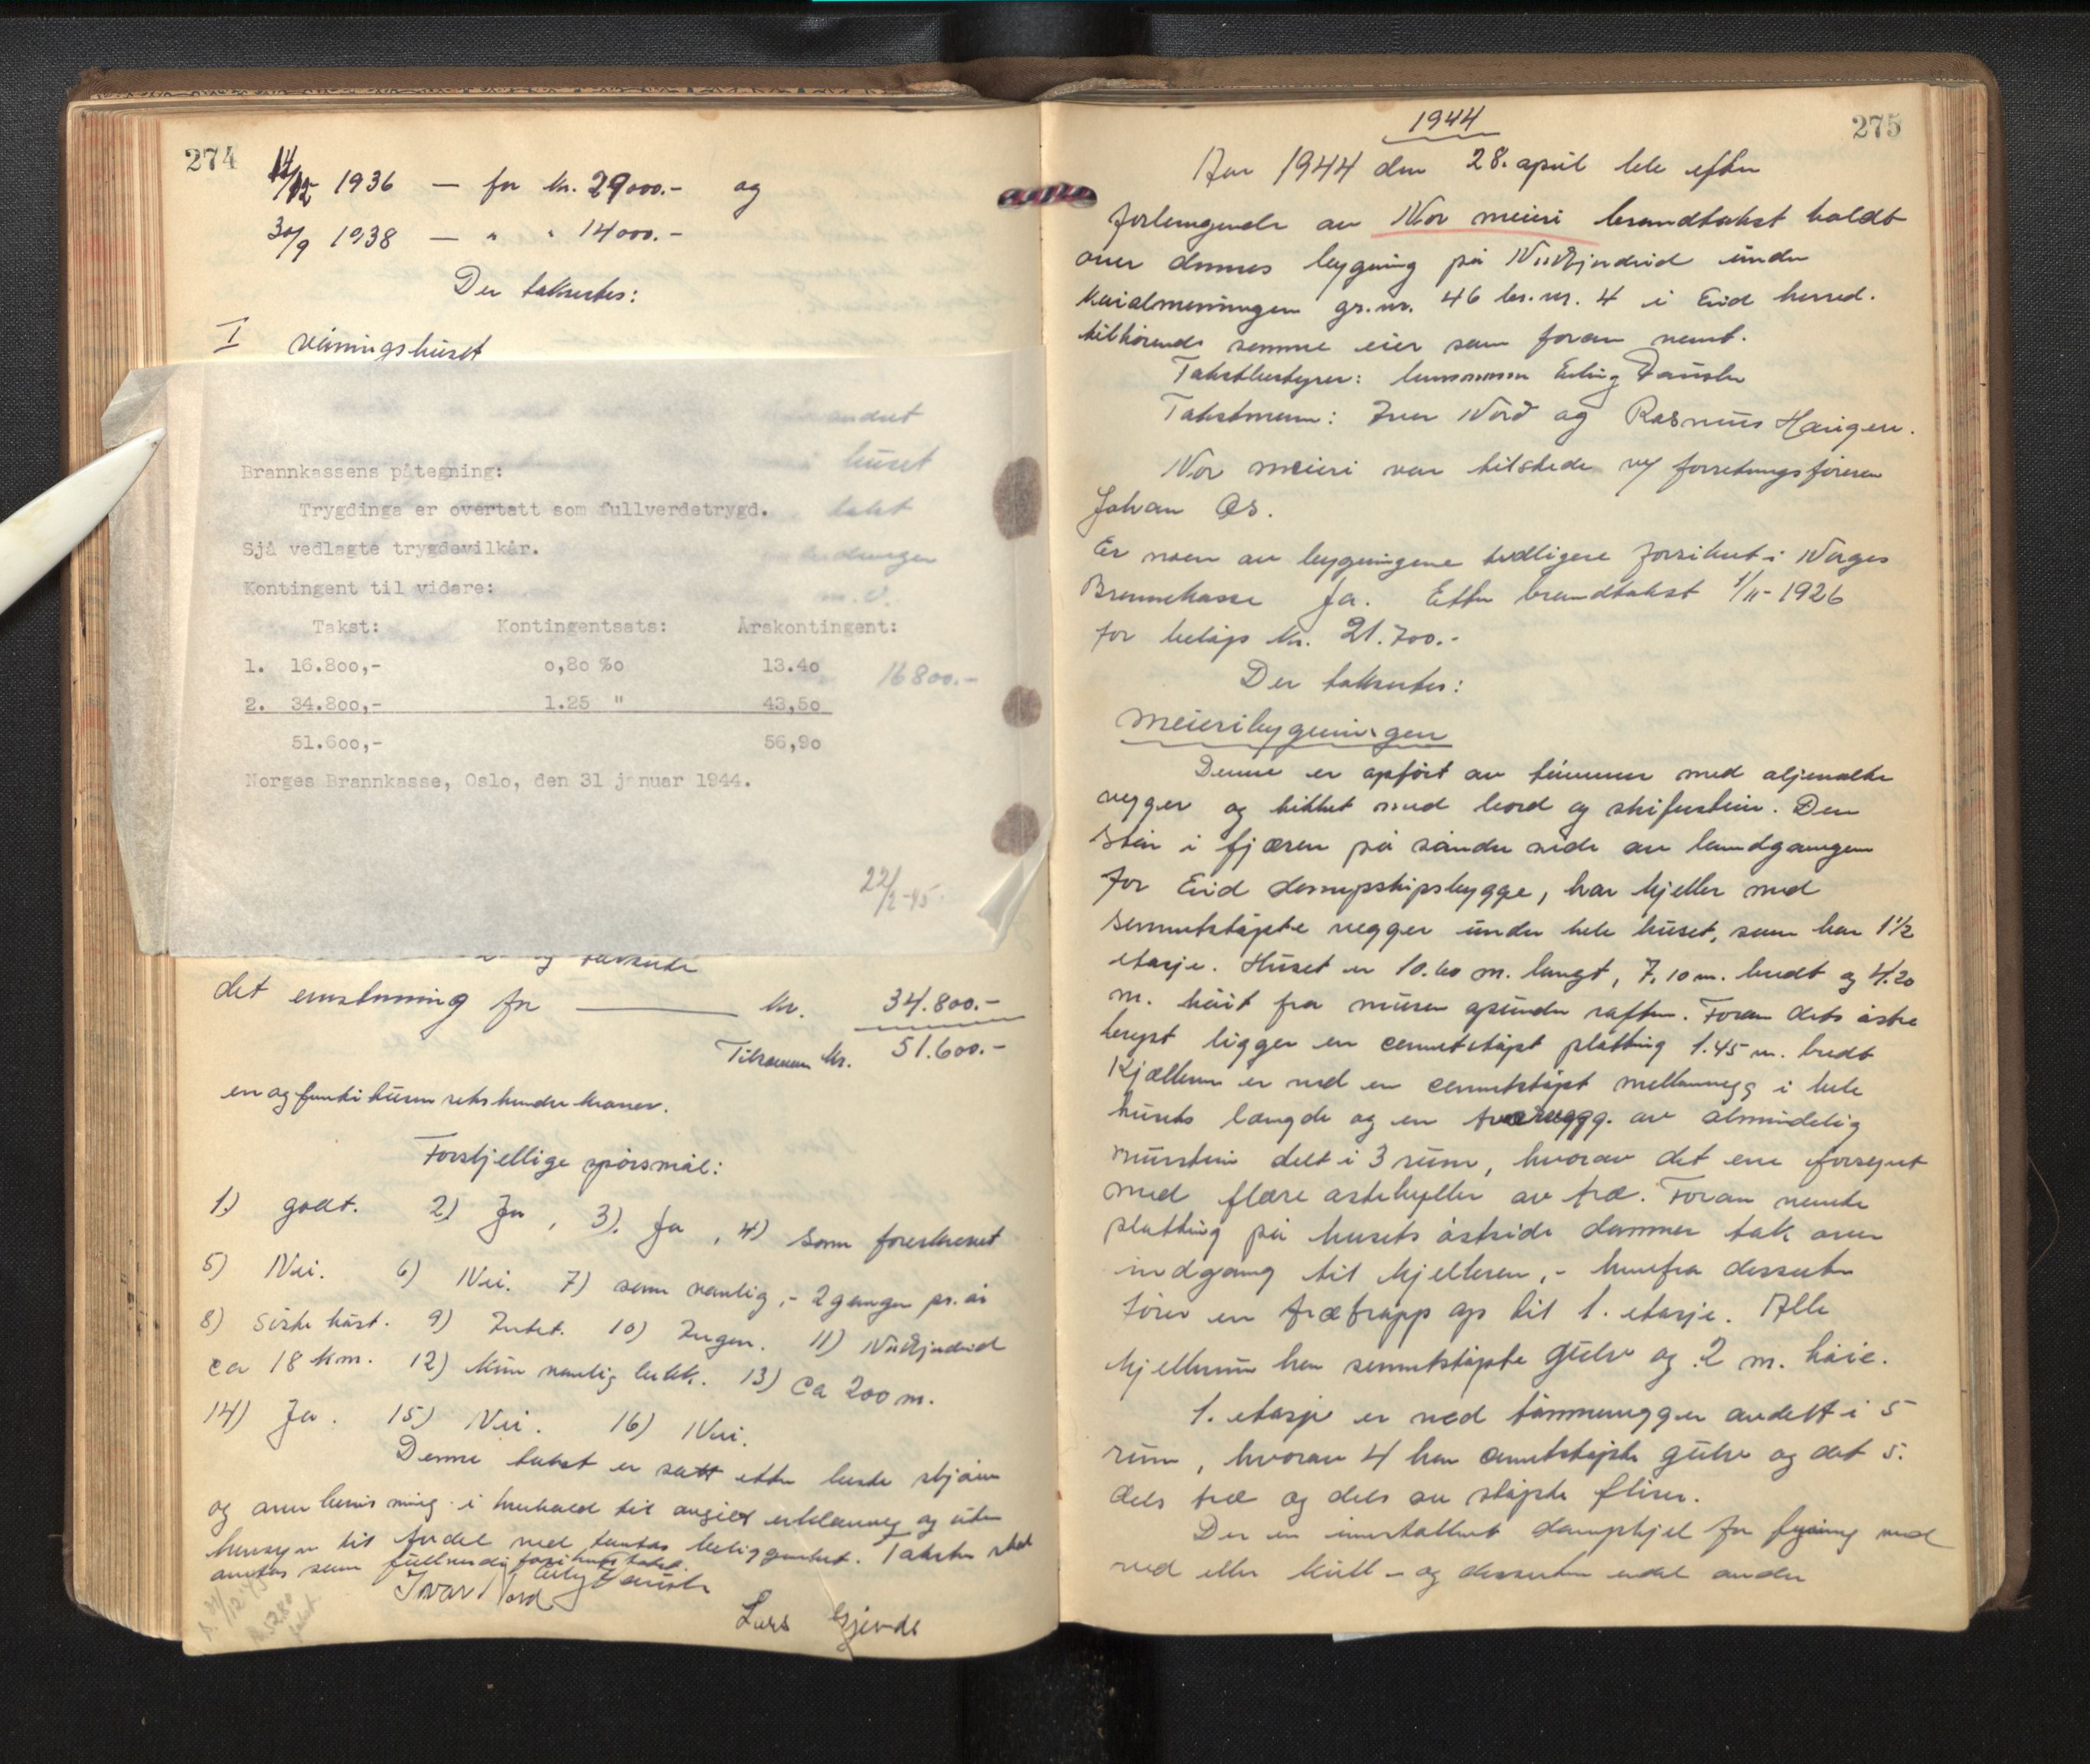 274
14/12 1936 — for kr. 29000.- og
30/9 1938 — " " 14000.-
Der taksertes:
I våningshuset
andret
huset
takst
m.v.
16800.-
Brannkassens påtegning:
Trygdinga er overtatt som fullverdetrygd.
Sjå vedlagte trygdevilkår.
Kontingent til vidare:
Takst: Kontingentsats: Årskontingent:
1. 16.800,- 0,80 ‰ 13.40
2. 34.800,- 1.25 " 43,50
51.600,- 56,90
Norges Brannkasse, Oslo, den 31 januar 1944.
22/2-45.
det for kr. 34.800.-
Tilsammen kr. 51.600.-
en og femti tusen seks hundre kroner.
Forskjellige spørsmål:
1) godt. 2) Ja, 3). Ja, 4) Som foreskrevet
5) Nei. 6) Nei. 7) som vanlig,- 2 ganger pr. år
8) Siste høst. 9) Intet. 10) Ingen. 11) Nordfjordeid
ca 18 km. 12) kun vanlig 13) Ca 200 m.
14) Ja. 15) Nei. 16) Nei.
Denne takst er satt etter beste skjøn
og overbevisning i henhold til avgitt erklæring og uten
hensyn til beliggenhet. Taksten skal
ansees som fullverdig
Ivar Nord Erling Tausler
Lars Gjerde
1944
275
Aar 1944 den 28. april ble efter
forlangende av Nor meieri brandtakst holdt
over dennes bygning på Nordfjordeid under
Kaialmenningen gr.nr. 46 br.nr. 4 i Eid herred.
tilhørende samme eier som foran nemt.
Takstbestyrer: lensmann Erling
Takstmenn: Iver Nord og Rasmus Haugen.
Nor meieri var tilstede v/ forretningsføreren
Johan Os.
Er noen av bygningene tidligere forsikret i Norges
Brannkasse Ja. Etter brandtakst 1/11-1926
for beløp kr. 21.700.-
Der taksertes:
Meieribygningen
Denne er opført av tømmer med oljemalte
vegger og tekket med bord og skiferstein. Den
Står i fjæren på søndre side av landgangen
for Eid dampskipsbrygge, har kjeller med
sementstøpte vegger under hele huset, som har 1½
etasje. Huset er 10.60 m. langt, 7,10 m. bredt og 4.20
m. høit fra muren gjennom raften. Foran dets østre
ligger en cementstøpt platting 1.45 m. bredt
Kjelleren er ved en cementstøpt mellemvegg i hele
husets længde og en tværvegg. av almindelig
murstein delt i 3 rum, hvorav det ene forsynt
med flere ostehyller av træ. Foran nemte
platting på husets østside danner tak over
indgang til kjelleren,- herfra dessuten
fører en trætrapp op til 1. etasje. Alle
kjellerrum har sementstøpte gulv og 2 m. høie.
1. etasje er ved tømmervegger avdelt i 5
rum, hvorav 4 har cementstøpte gulv og det 5.
dels træ og dels av støpte fliser.
Der er innstallert dampkjel for fyring med
ved eller kull - og dessuten endel andre